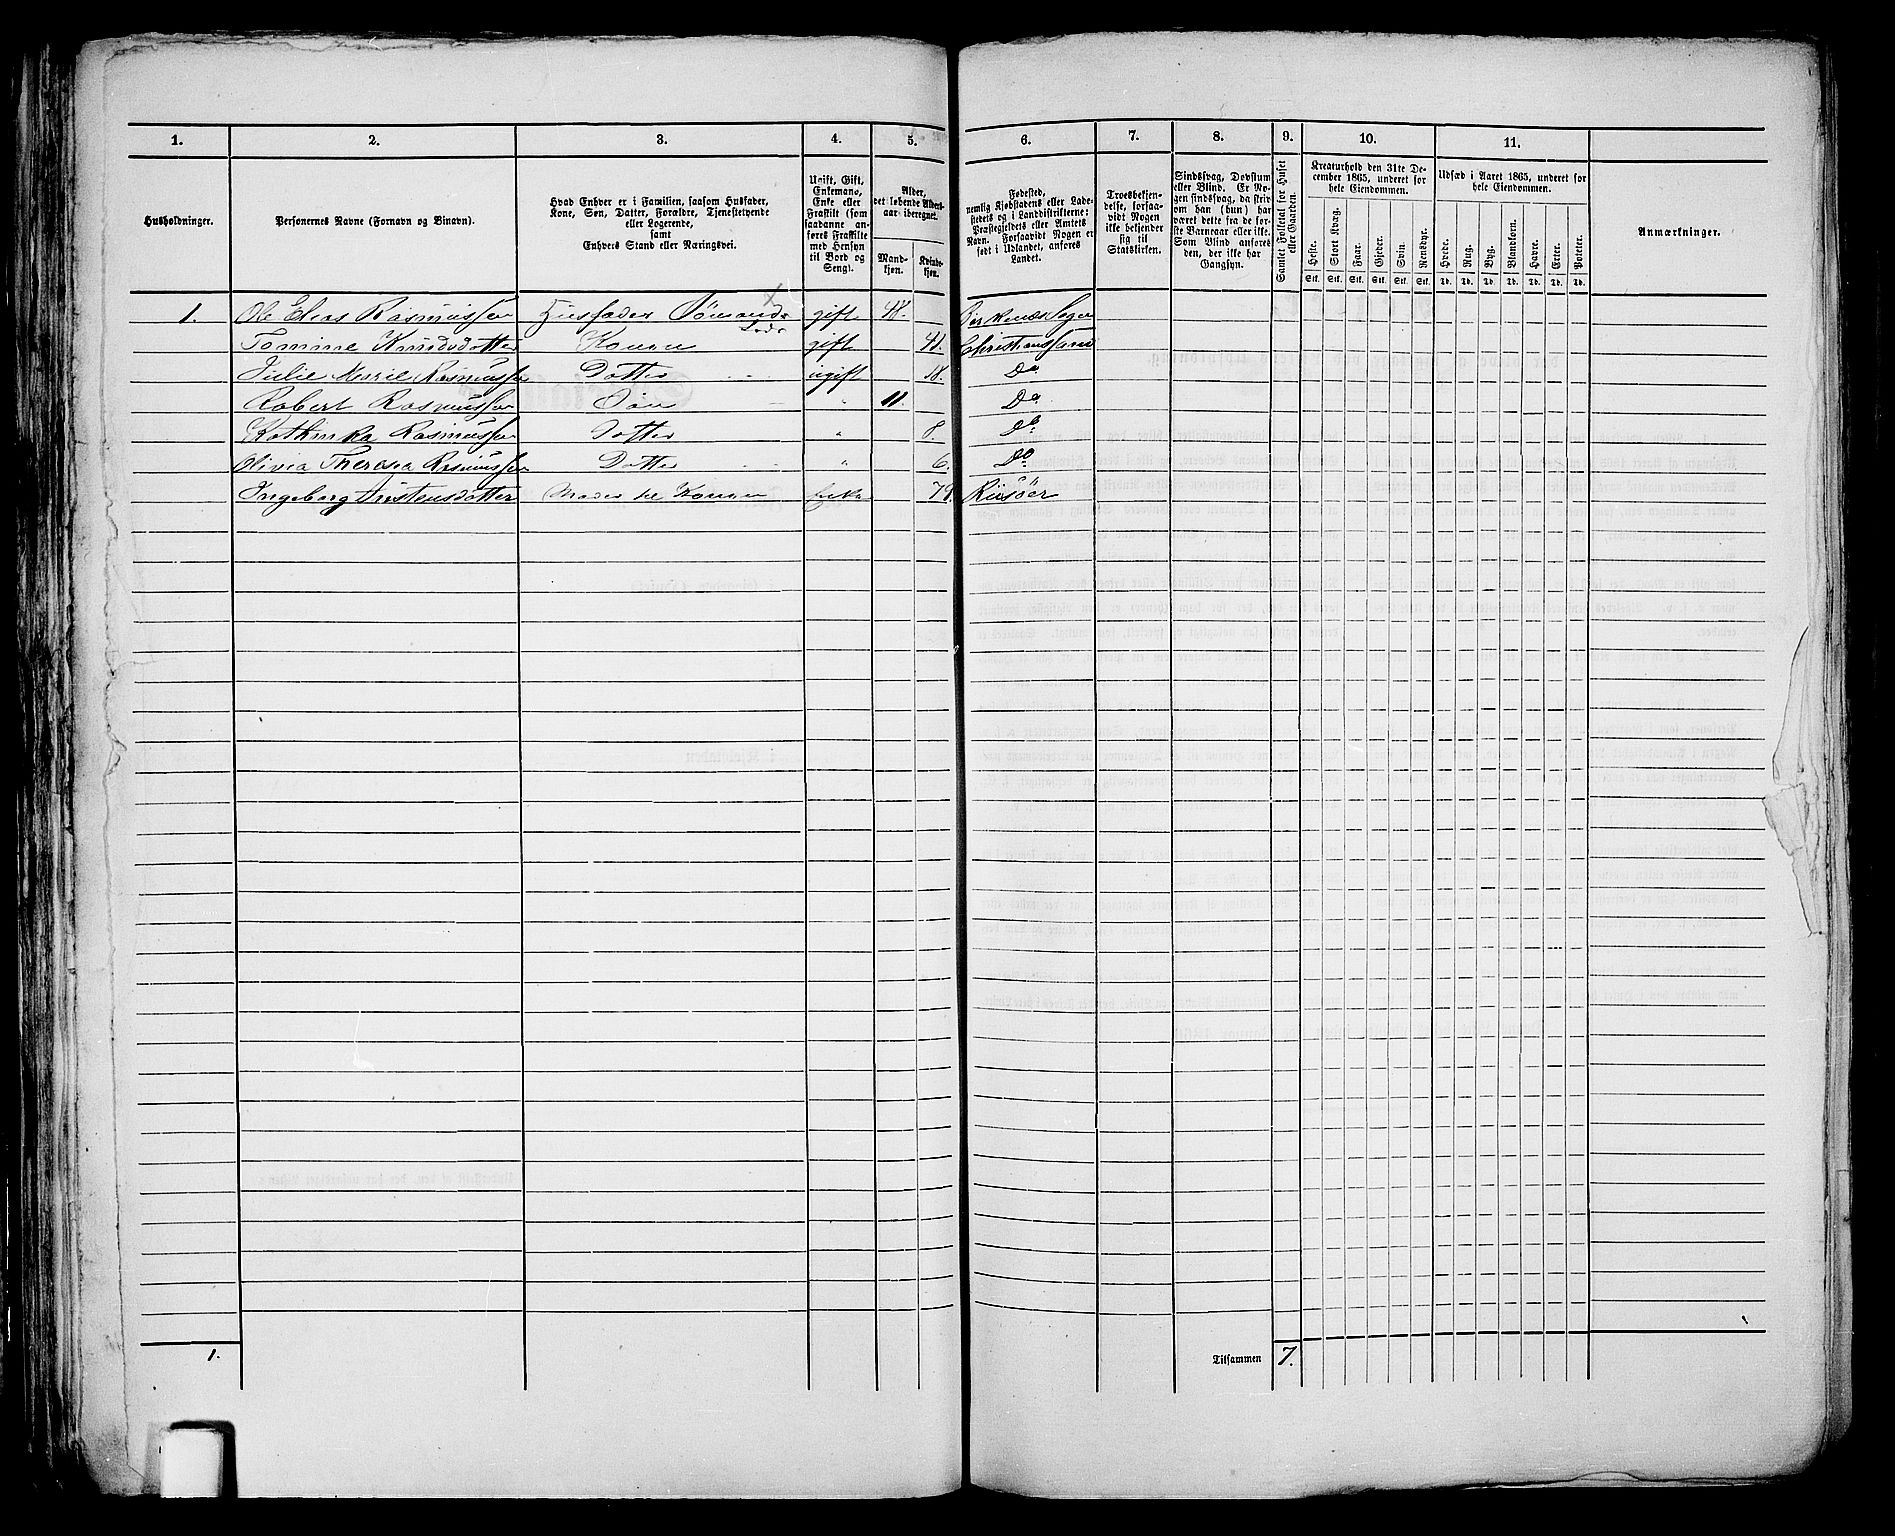 1. 2. 3. 4. 5. 6. 7. 8. 9. 10. 11.
Husholdninger.
Personernes Navne (Fornavn og Binavn).
Hvad Enhver er i Familien, saasom Husfader,
Kone, Søn, Datter, Forældre, Tjenestetyende
eller Logerende,
samt
Enhvers Stand eller Næringsvei.
Ugift, Gift,
Enkemand,
Enke eller
Fraskilt (som
saadanne an-
føres Fraskilte
med Hensyn
til Bord og
Seng).
Alder,
det løbende Alders-
aar iberegnet.
Mand-
kjøn.
Kvinde-
kjøn.
Fødested,
nemlig Kjøbstadens eller Lade-
stedets og i Landdistrikterne:
Præstegjeldets eller Amtets
Navn. Forsaavidt Nogen er
født i Udlandet, anføres
Landet.
Troesbekjen-
delse, forsaa-
vidt Nogen
ikke bekjender
sig til
Statskirken.
Sindssvag, Døvstum
eller Blind. Er No-
gen sindssvag, da skriv
om han (hun) har
været dette fra de før-
ste Barneaar eller ikke.
Som Blind anføres
den, der ikke har
Gangsyn.
Samlet Folketal for Huset
eller Gaarden.
Kreaturhold den 31te De-
cember 1865, underet for
hele Eiendommen.
Heste. Stort Kvæg. Faar. Gjeder. Svin. Rensdyr.
Stk. Stk. Stk. Stk. Stk. Stk.
Udsæd i Aaret 1865, underet for
hele Eiendommen.
Hvede. Rug. Byg. Blandkorn. Havre. Erter. Poteter.
Td. Td. Td. Td. Td. Td. Td.
Anmærkninger.
1. Ole Elias Rasmussen Husfader Sømand gift 48. Birkenæs Sogn
Tomine Knudsdotter Konen gift 41. Christianssand
Julie Marie Rasmussen Dotter ugift 18. Do
Robert Rasmussen Søn " 11. Do
Kathinka Rasmussen Dotter " 8. Do
Olivia Theresia Rasmussen Dotter " 6. Do
Ingeborg Austensdotter Moder til Konen Enke 79. Riisöer
1. Tilsammen 7.